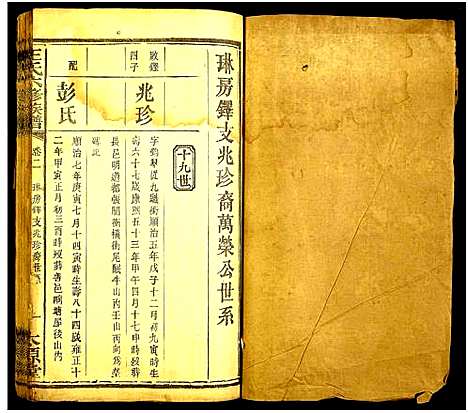 琳房鐸支兆珍裔萬榮公世系
十九世
政鐸
四子
兆珍
字
九
順治五年戊子十二月初九寅時生
壽六十七歲康熙五十三年甲午四月十七
長邑明道都張閣衝橫衝尾
山內壬山丙向為塋
配
彭氏
順治七年庚寅七月十四寅時生壽八十四歲雍正十
二年甲寅正月初三酉時歿葬
後山內
王氏六修族譜
卷二
琳房鐸支兆珍裔世系
一
太原堂